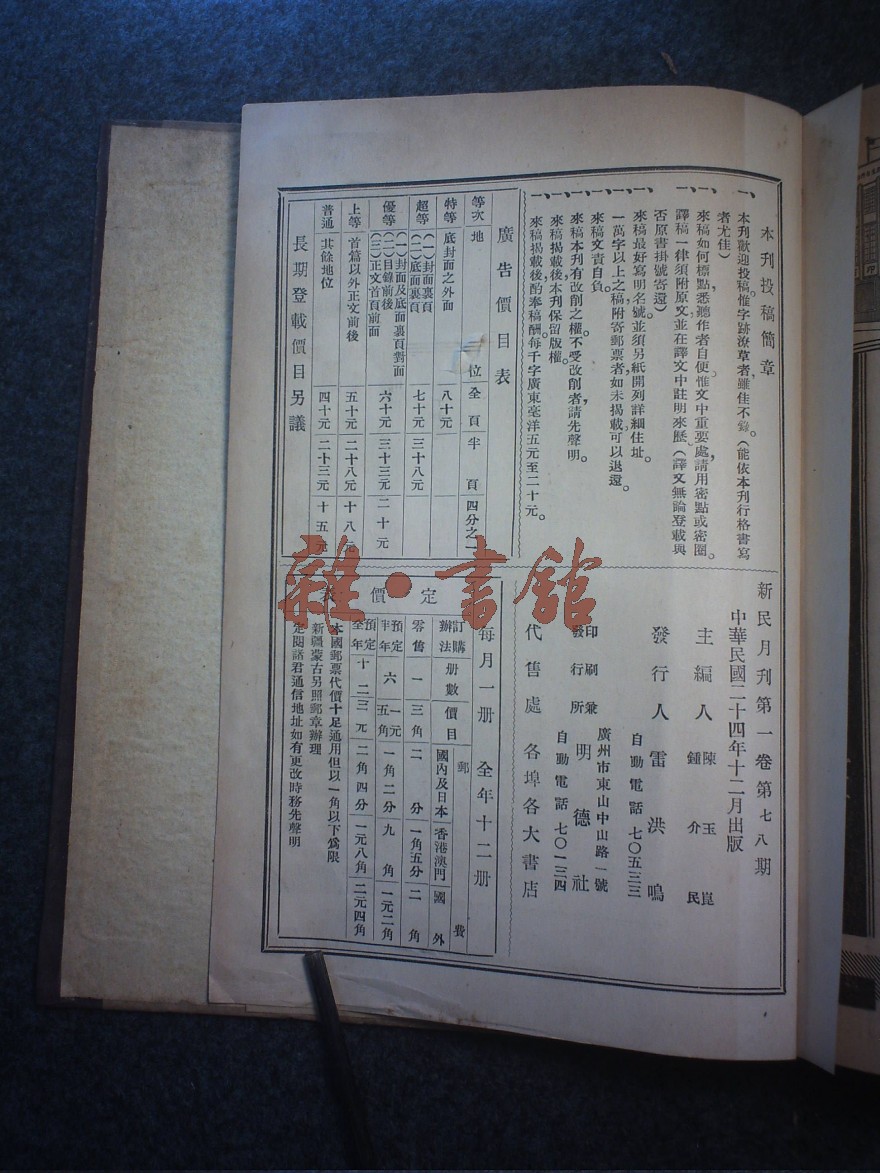 本刊投稿簡章
一、本刊歡迎投稿、惟字跡潦草者雖佳不錄。（能依本刊行格書寫
者尤佳）
一、來稿如何標點悉聽作者自便。惟文中重要處，請用密點或密圈。
一、譯稿一律須附原文，並在譯文中註明來歷。（譯文無論登載與
否原書掛號寄還）
一、來稿最好寫明名號並須另紙開列詳細住址。
一、一萬字以上之稿附寄郵票者，如未揭載，可以退還。
一、來稿文責自負。
一、來稿本刊有改削之權。不受改削者，請先聲明。
一、來稿揭載後本刊保留版權。
一、來稿揭載後，酌奉稿酬。每千字廣東毫洋五元至二十元。
廣告價目表
等次 地位 全頁 半頁 四分之一
特等 底封面之外面 八十元
超等 （一）封面裏頁 （二）底面裏頁 七十元 三十八元
優等 （一）封面及底面裏頁對面 （二）目錄前後 （三）正文首頁前面 六十元 三十三元 二十元
上等 首篇以外正文前後 五十元 二十八元 十八元
普通 其餘地位 四十元 二十三元 十五元
長期登載價目另議
新民月刊第一卷第七八期
中華民國二十四年十二月出版
主編人 陳玉崑 鍾介民
發行人 雷洪鳴
自動電話 七〇五三三
廣州市東山中山路一號
印刷兼發行所 明德社
自動電話 七〇一三四
代售處 各埠各大書店
定價
每月一册 全年十二册
訂購辦法 册數 價目 郵費 國內及日本 香港澳門 國外
零售 一 三角 二分 一角五分 二角
預定半年 六 一元五角 一角二分 九角 一元二角
預定全年 十二 三元 二角四分 一元八角 二元四角
本國郵票代價十足通用但以一角以下爲限
新疆蒙古另照郵章辦理
定閱諸君通信地址如有更改時務先聲明
雜·書館